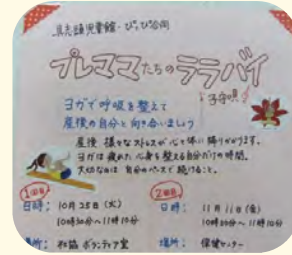 具志頭児童館・ぴっぴ合同
プレママたちのララバイ
子守唄
ヨガで呼吸を整えて
産後の自分と向き合いましょう
産後 様々なストレスが心と体に降りかかります。
ヨガは疲れた心身を整える自分だけの時間。
大切なのは 自分のペースで続けること。
1回目
日時: 10月25日(火)
10時30分~11時10分
場所: 和室 ボランティア室
2回目
日時: 11月11日(金)
10時30分~11時10分
場所: 保健センター